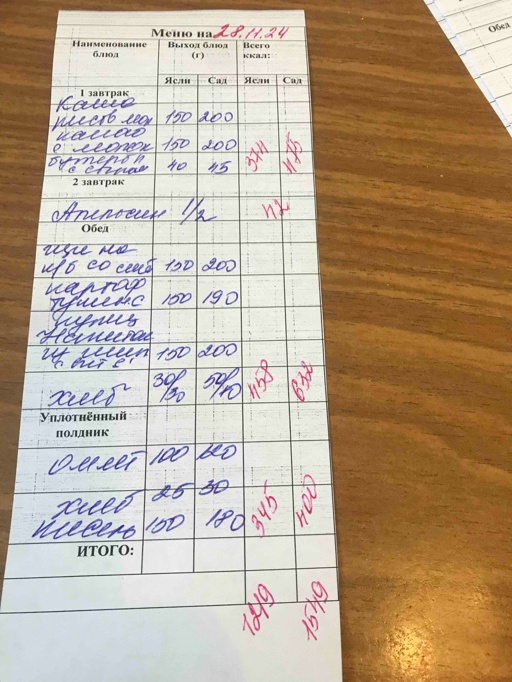 Меню на 28.11.24
Наименование блюд Выход блюд (г) Всего ккал:
Ясли Сад Ясли Сад
1 завтрак
Каша
рисов мол 150 200
какао
с молок 150 200
бутерб п
с сыром 40 45 374 475
2 завтрак
Апельсин 1/2 42
Обед
щи на
к/б со смет 150 200
картоф
тушен с 150 190
куриц
Напиток
из шип 150 200
с вит С
хлеб 30/30 50/40 458 632
Уплотнённый
полдник
Омлет 100 120
хлеб 25 30
кисель 150 180 345 400
ИТОГО:
1219 1549
Обед